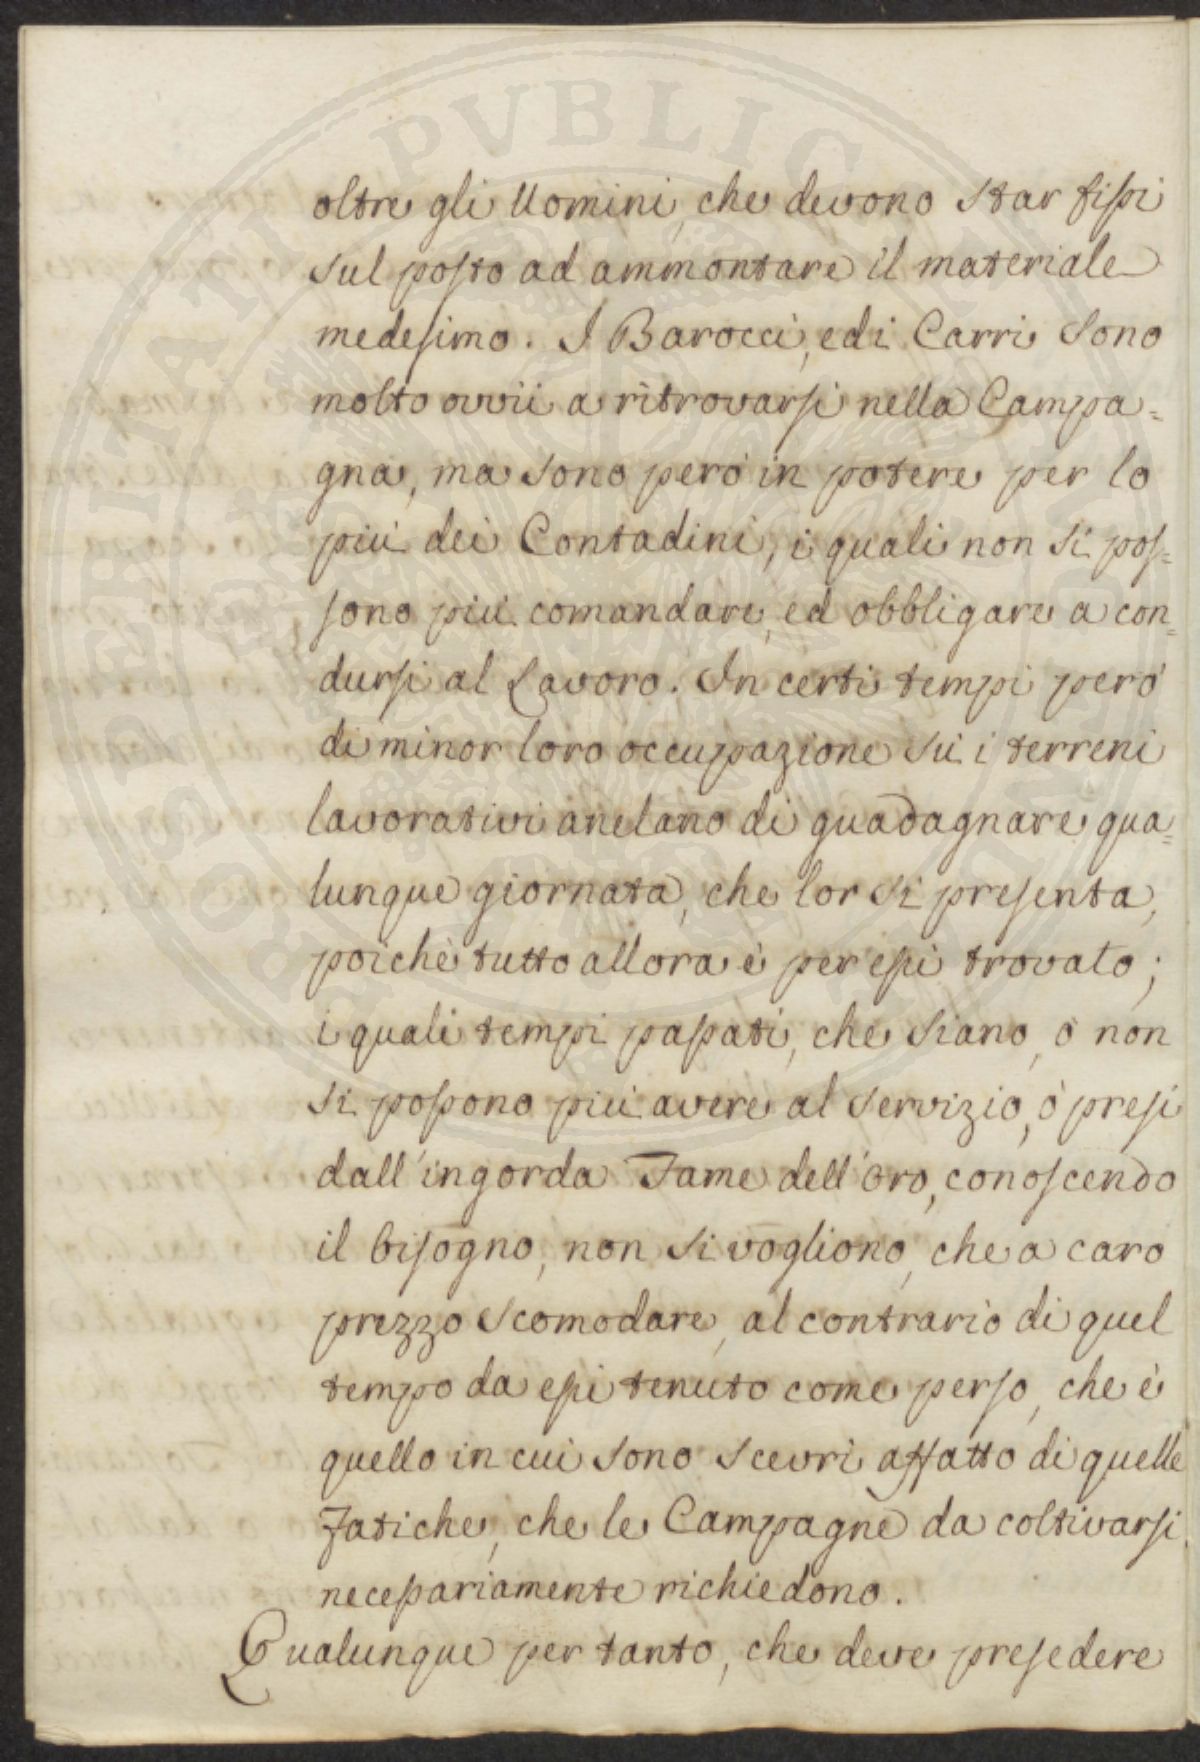 oltre gli Uomini, che devono star fissi
sul posto ad ammontare il materiale
medesimo. I Barocci, ed i Carri sono
molto ovvii a ritrovarsi nella Campa=
gna, ma sono però in potere per lo
più dei Contadini, i quali non si pos=
sono più comandare, ed obbligare a con=
dursi al Lavoro. In certi tempi però
di minor loro occupazione su i terreni
lavorativi anelano di guadagnare qua=
lunque giornata, che lor si presenta,
poichè tutto allora è per essi trovato;
i quali tempi passati, che siano, ò non
si possono più avere al servizio, ò presi
dall'ingorda Fame dell'Oro, conoscendo
il bisogno, non si vogliono, che a caro
prezzo scomodare, al contrario di quel
tempo da essi tenuto come perso, che è
quello in cui sono scevri affatto di quelle
Fatiche, che le Campagne da coltivarsi
necessariamente richiedono.
Qualunque per tanto, che deve presedere
PROSPERITATI PVBLICAE